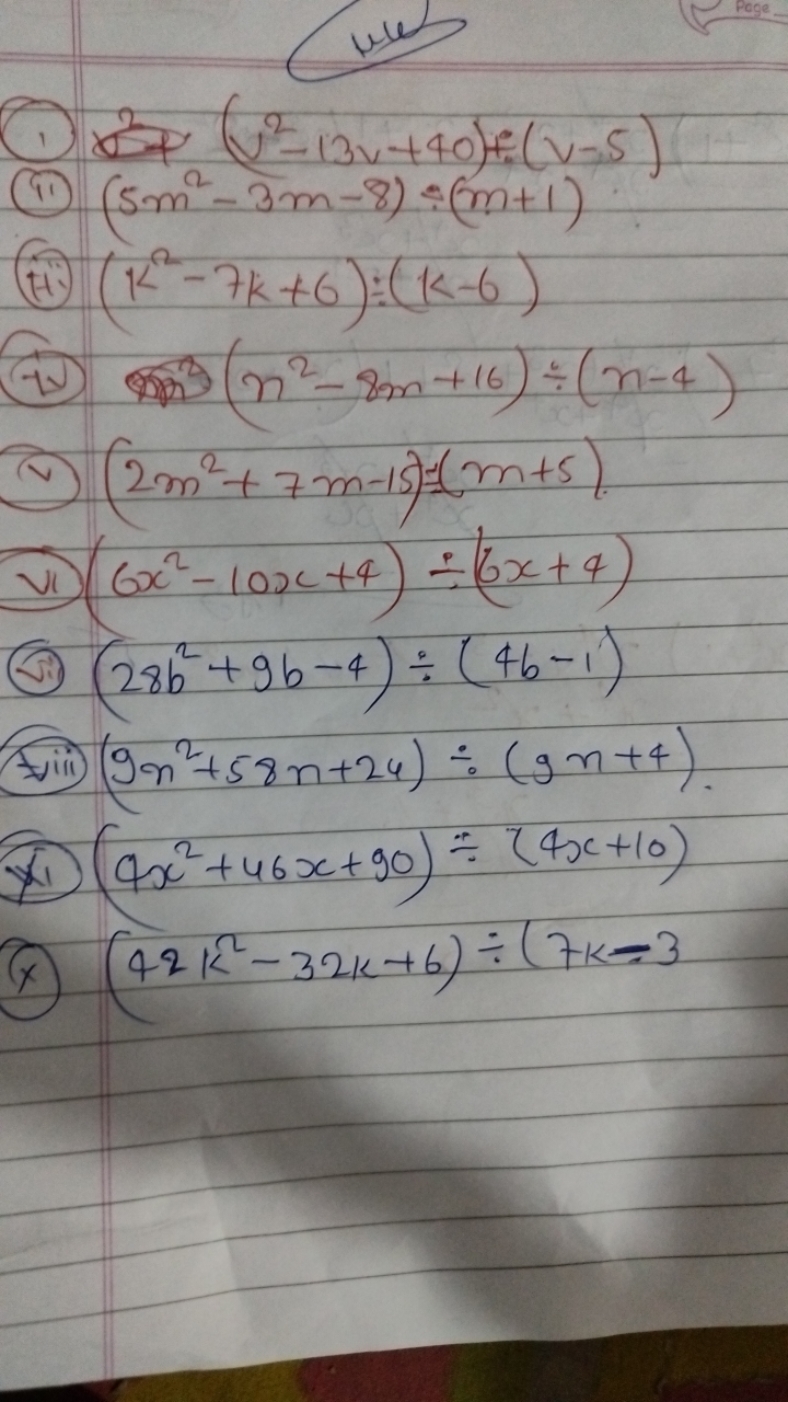 Page
i (v² - 13v + 40) ÷ (v - 5)
ii (5m² - 3m - 8) ÷ (m + 1)
iii (k² - 7k + 6) ÷ (k - 6)
iv (n² - 8m + 16) ÷ (n - 4)
v (2m² + 7m - 15) ÷ (m + 5)
vi (6x² - 10x + 4) ÷ (6x + 4)
vii (28b² + 9b - 4) ÷ (4b - 1)
viii (9n² + 58n + 24) ÷ (9n + 4).
xi (4x² + 46x + 90) ÷ (4x + 10)
x (42k² - 32k + 6) ÷ (7k - 3